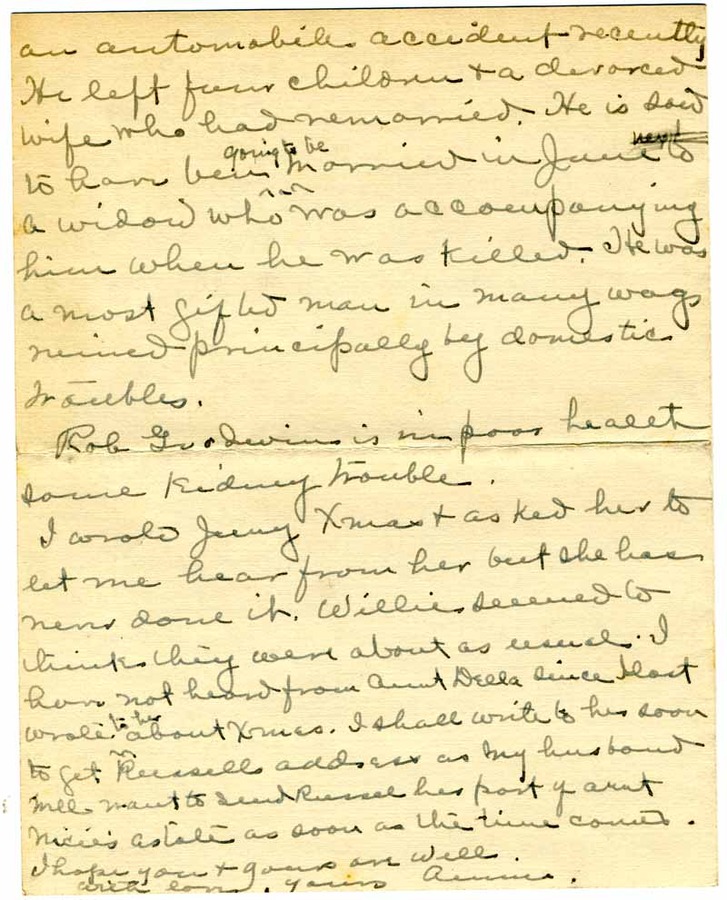 an automobile accident recently
He left four children + a devorced
wife who had remarried. He is said
to have been going to be married in June to
a widow who was accompanying
him when he was killed. He was
a most gifted man in many ways
ruined principally by domestic
troubles.
Rob Goodwin is in poor health
some kidney trouble.
I wrote Jenny Xmas + asked her to
let me hear from her but she has
never done it. Willie seemed to
think they were about as usual. I
have not heard from Aunt Della since I last
wrote to her about Xmas. I shall write to her soon
to get Russell's address as my husband
will want to send Russel his part of aunt
estate as soon as the time comes.
I hope you + yours are well.
with love, yours